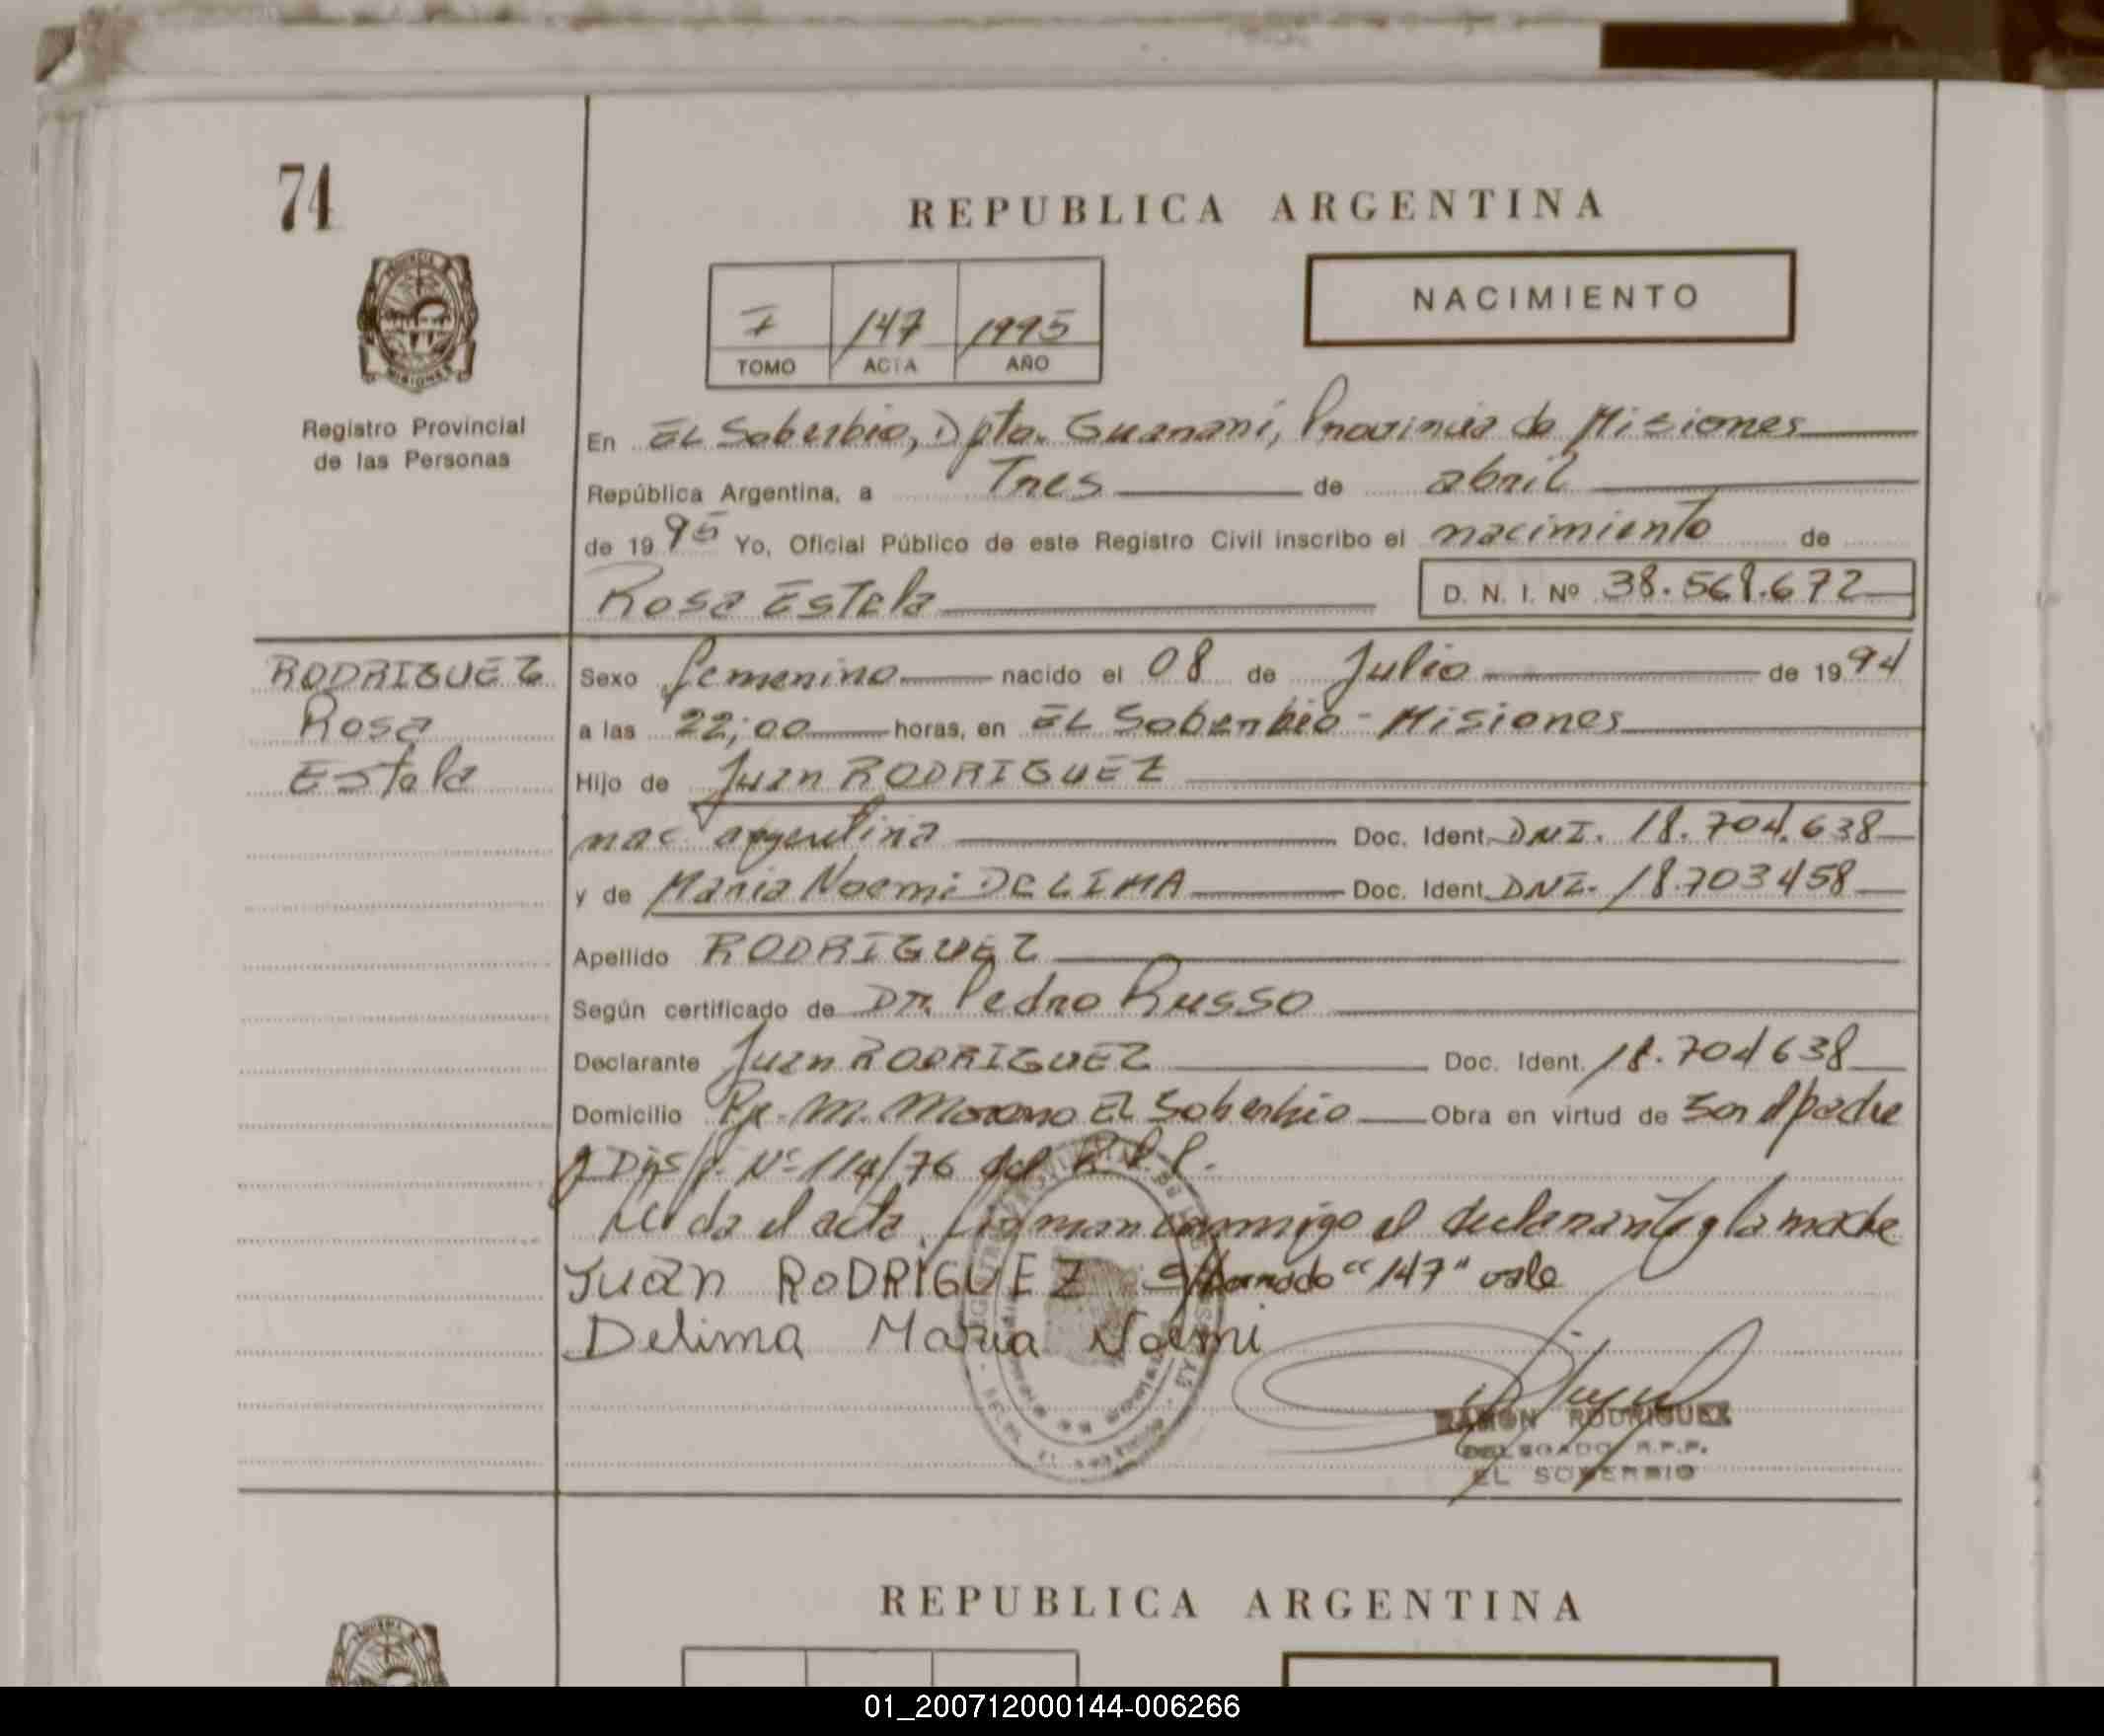 74
REPUBLICA ARGENTINA
NACIMIENTO
I 147 1995
TOMO ACTA AÑO
Registro Provincial
de las Personas
En El Soberbio, Dpto. Guarani, Provincia de Misiones
República Argentina, a Tres de abril
de 1995 Yo, Oficial Público de este Registro Civil inscribo el nacimiento de
Rosa Estela D. N. I. Nº 38.568.672
RODRIGUEZ
Rosa
Estela
Sexo femenino nacido el 08 de Julio de 1994
a las 22;00 horas, en El Soberbio - Misiones
Hijo de Juan RODRIGUEZ
nac argentina Doc. Ident. DNI. 18.704.638
y de Maria Noemi DE LIMA Doc. Ident. DNI. 18.703458
Apellido RODRIGUEZ
Según certificado de Dr. Pedro Russo
Declarante Juan RODRIGUEZ Doc. Ident. 18.704638
Domicilio M. Moreno El Soberbio Obra en virtud de ser el padre
y Disp. Nº 114/76 del R.P.P.
Leida el acta, firman conmigo el declarante y la madre
Juan RODRIGUEZ S/borrado "147" vale
Delima Maria Noemi
RAMON RODRIGUEZ
DELEGADO R.P.P.
EL SOBERBIO
REPUBLICA ARGENTINA
01_200712000144-006266